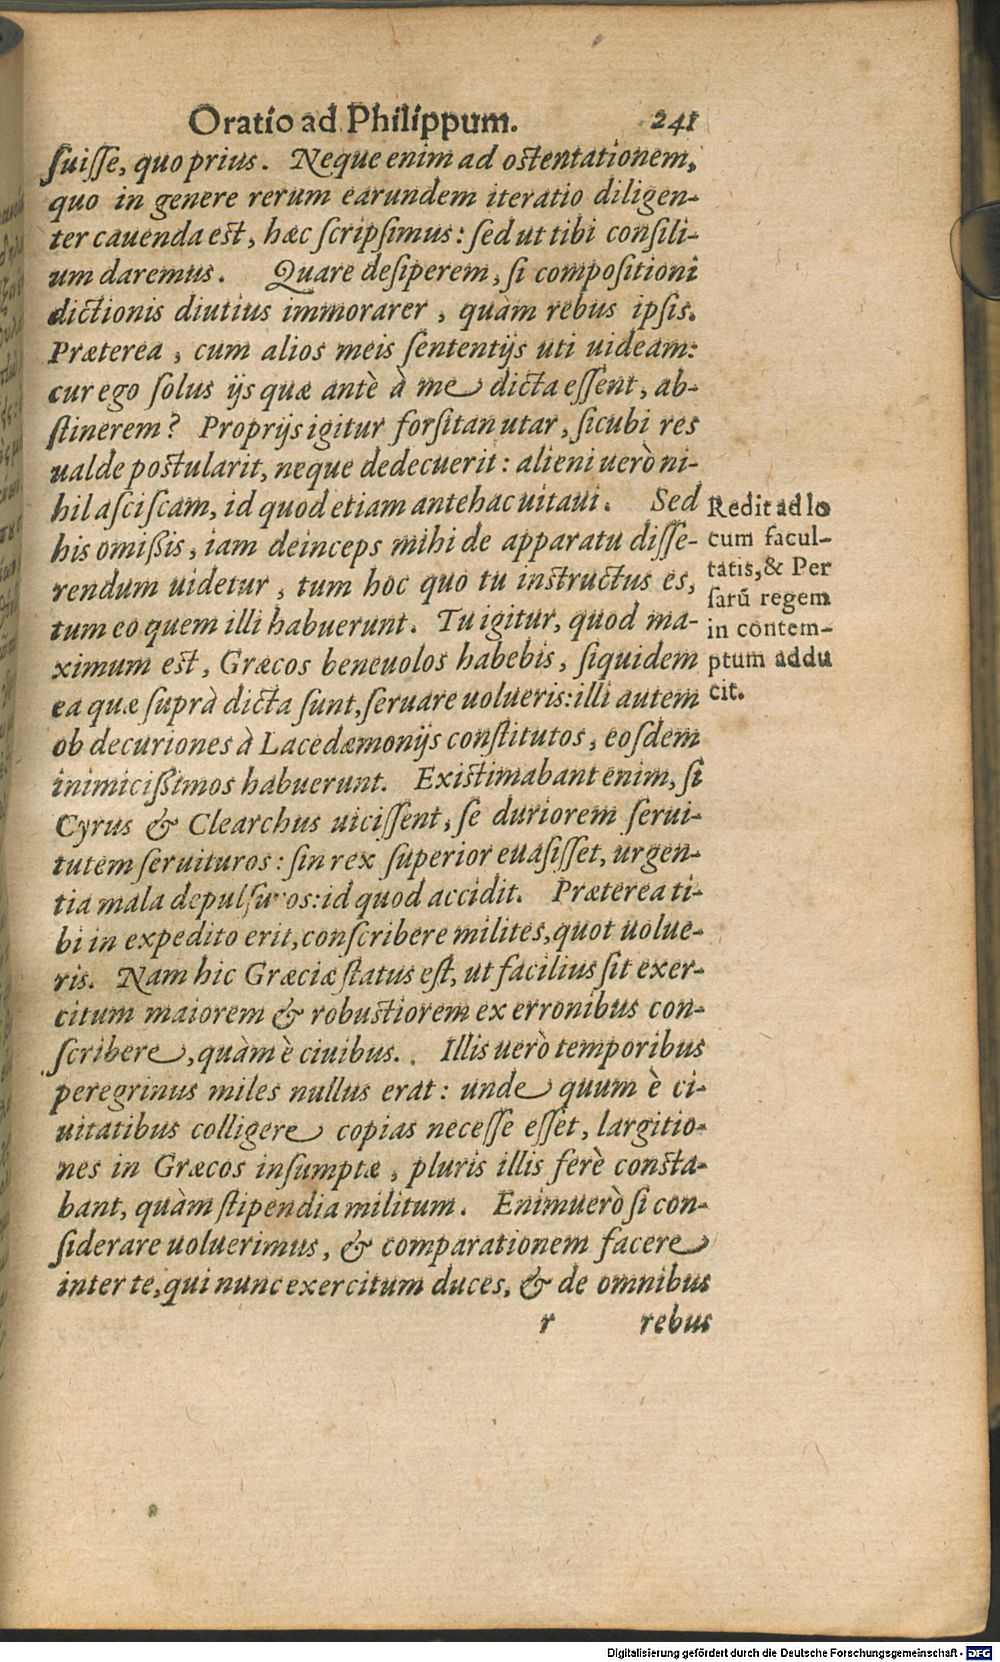 Oratio ad Philippum. 241
ſuiſſe, quo prius. Neque enim ad oſtentationem,
quo in genere rerum earundem iteratio diligen-
ter cauenda eſt, hæc ſcripſimus: ſed ut tibi conſili-
um daremus. Quare deſiperem, ſi compoſitioni
dictionis diutius immorarer, quàm rebus ipſis.
Præterea, cum alios meis ſententijs uti uideam:
cur ego ſolus ijs quæ antè à me dicta eſſent, ab-
ſtinerem? Proprijs igitur forſitan utar, ſicubi res
ualde poſtularit, neque dedecuerit: alieni uerò ni-
hil aſciſcam, id quod etiam antehac uitaui. Sed
his omißis, iam deinceps mihi de apparatu diſſe-
rendum uidetur, tum hoc quo tu inſtructus es,
tum eo quem illi habuerunt. Tu igitur, quod ma-
ximum eſt, Græcos beneuolos habebis, ſiquidem
ea quæ ſuprà dicta ſunt, ſeruare uolueris: illi autem
ob decuriones à Lacedæmonijs conſtitutos, eoſdem
inimicißimos habuerunt. Exiſtimabant enim, ſi
Cyrus & Clearchus uiciſſent, ſe duriorem ſerui-
tutem ſeruituros: ſin rex ſuperior euaſiſſet, urgen-
tia mala depulſuros: id quod accidit. Præterea ti-
bi in expedito erit, conſcribere milites, quot uolue-
ris. Nam hic Græciæ ſtatus eſt, ut facilius ſit exer-
citum maiorem & robuſtiorem ex erronibus con-
ſcribere, quàm è ciuibus. Illis uerò temporibus
peregrinus miles nullus erat: unde quum è ci-
uitatibus colligere copias neceſſe eſſet, largitio-
nes in Græcos inſumptæ, pluris illis ferè conſta-
bant, quàm ſtipendia militum. Enimuerò ſi con-
ſiderare uoluerimus, & comparationem facere
inter te, qui nunc exercitum duces, & de omnibus
r rebus
Redit ad lo
cum facul-
tatis, & Per
ſarũ regem
in contem-
ptum addu
cit.
Digitalisierung gefördert durch die Deutsche Forschungsgemeinschaft - DFG